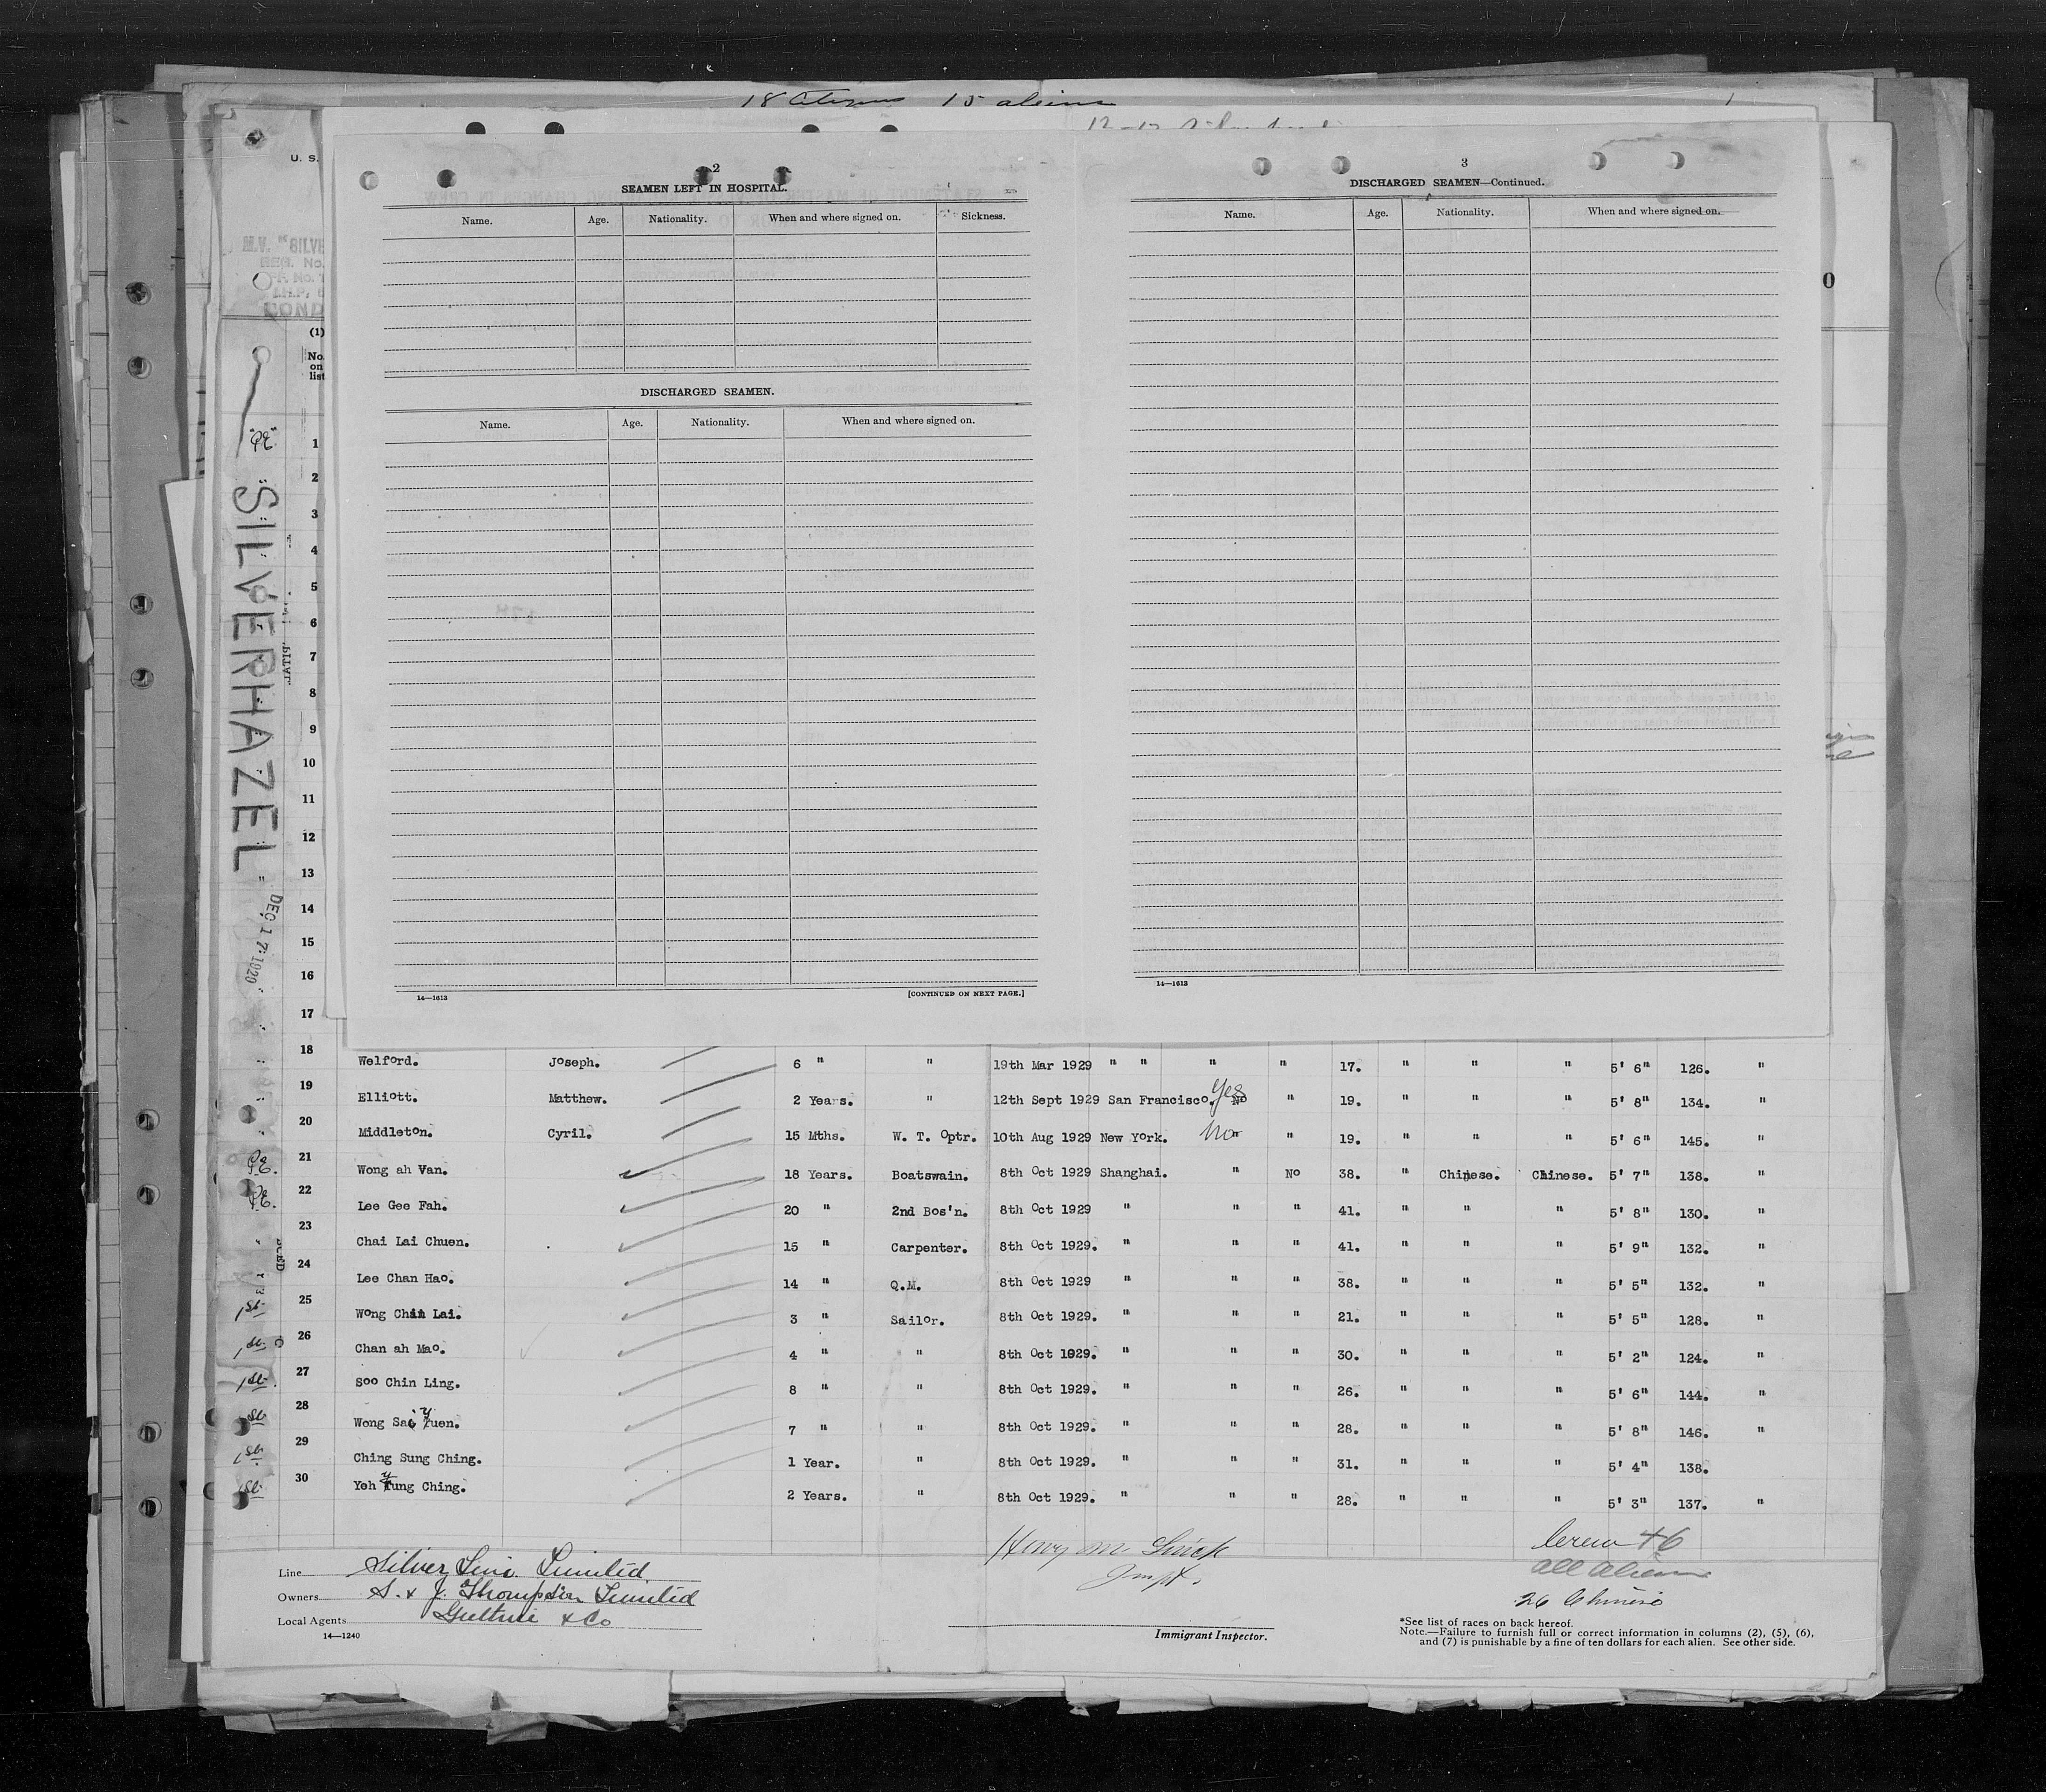 18 Citizens 15 aliens
U. S.
M.V. "SILVE
REG. No.
COND
(1)
No.
on
list
0
2
SEAMEN LEFT IN HOSPITAL.
Name. Age. Nationality. When and where signed on. Sickness.
DISCHARGED SEAMEN.
Name. Age. Nationality. When and where signed on.
14—1613 [CONTINUED ON NEXT PAGE.]
3
DISCHARGED SEAMEN—Continued.
Name. Age. Nationality. When and where signed on.
14—1613
"SILVERHAZEL"
DEC 17 1929
1
2
3
4
5
6
7
8
9
10
11
12
13
14
15
16
17
18 Welford. Joseph. 6 " " 19th Mar 1929 " " " " 17. " " " 5' 6" 126. "
19 Elliott. Matthew. 2 Years. " 12th Sept 1929 San Francisco. Yes No " 19. " " " 5' 8" 134. "
20 Middleton. Cyril. 15 Mths. W. T. Optr. 10th Aug 1929 New York. No " " 19. " " " 5' 6" 145. "
P.E. 21 Wong ah Van. 18 Years. Boatswain. 8th Oct 1929 Shanghai. " No 38. " Chinese. Chinese. 5' 7" 138. "
P.E. 22 Lee Gee Fah. 20 " 2nd Bos'n. 8th Oct 1929 " " " 41. " " " 5' 8" 130. "
23 Chai Lai Chuen. 15 " Carpenter. 8th Oct 1929. " " " 41. " " " 5' 9" 132. "
24 Lee Chan Hao. 14 " Q.M. 8th Oct 1929 " " " 38. " " " 5' 5" 132. "
1st 25 Wong Chin Lai. 3 " Sailor. 8th Oct 1929. " " " 21. " " " 5' 5" 128. "
1st 26 Chan ah Mao. 4 " " 8th Oct 1929. " " " 30. " " " 5' 2" 124. "
1st. 27 Soo Chin Ling. 8 " " 8th Oct 1929. " " " 26. " " " 5' 6" 144. "
1st 28 Wong Sai Yuen. 7 " " 8th Oct 1929. " " " 28. " " " 5' 8" 146. "
1st. 29 Ching Sung Ching. 1 Year. " 8th Oct 1929. " " " 31. " " " 5' 4" 138.
1st 30 Yeh Yung Ching. 2 Years. " 8th Oct 1929. " " " 28. " " " 5' 3" 137. "
Line Silver Line Limited
Owners S. & J. Thompson Limited
Local Agents Guthrie & Co
14—1240
Immigrant Inspector.
Crew 46
all aliens
26 Chinese
*See list of races on back hereof.
Note.—Failure to furnish full or correct information in columns (2), (5), (6),
and (7) is punishable by a fine of ten dollars for each alien. See other side.